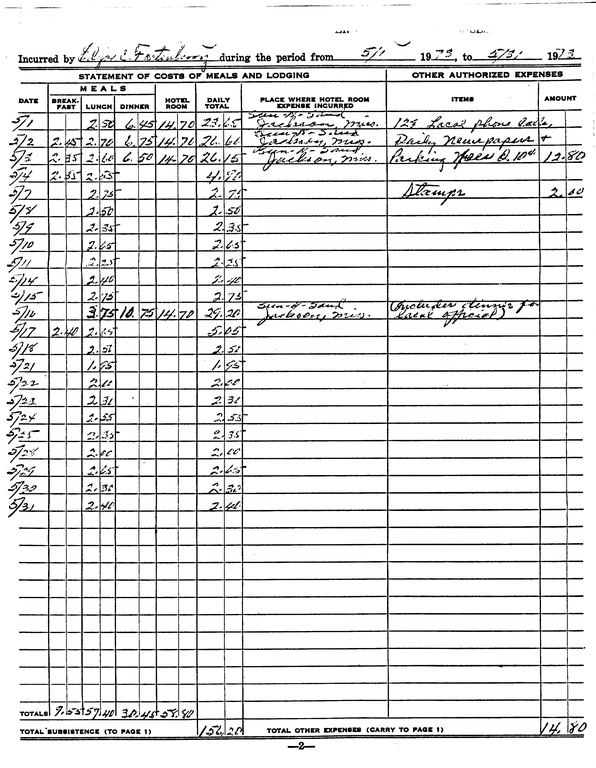 Incurred by Edgar C. Fortenberry during the period from 5/1 1973, to 5/31 1973
STATEMENT OF COSTS OF MEALS AND LODGING OTHER AUTHORIZED EXPENSES
MEALS
DATE BREAK-FAST LUNCH DINNER HOTEL ROOM DAILY TOTAL PLACE WHERE HOTEL ROOM EXPENSE INCURRED ITEMS AMOUNT
5/1 2.50 6.45 14.70 23.65 Sun-N-Sand Jackson, Miss. 128 Local phone calls,
5/2 2.45 2.70 6.75 14.70 26.60 Sun-N-Sand Jackson, Miss. Daily Newspaper &
5/3 2.35 2.60 6.50 14.70 26.15 Sun-N-Sand Jackson, Miss. Parking fees @ 10¢ 12.80
5/4 2.35 2.55 4.90
5/7 2.75 2.75 Stamps 2.00
5/8 2.50 2.50
5/9 2.35 2.35
5/10 2.65 2.65
5/11 2.25 2.25
5/14 2.40 2.40
5/15 2.75 2.75
5/16 3.75 10.75 14.70 29.20 Sun-N-Sand Jackson, Miss. (Includes dinner for local official)
5/17 2.40 2.65 5.05
5/18 2.50 2.50
5/21 1.95 1.95
5/22 2.00 2.00
5/23 2.30 2.30
5/24 2.55 2.55
5/25 2.35 2.35
5/28 2.00 2.00
5/29 2.65 2.65
5/30 2.30 2.30
5/31 2.40 2.40
TOTALS 9.55 57.40 30.45 58.80
TOTAL SUBSISTENCE (TO PAGE 1) 156.20 TOTAL OTHER EXPENSES (CARRY TO PAGE 1) 14.80
—2—